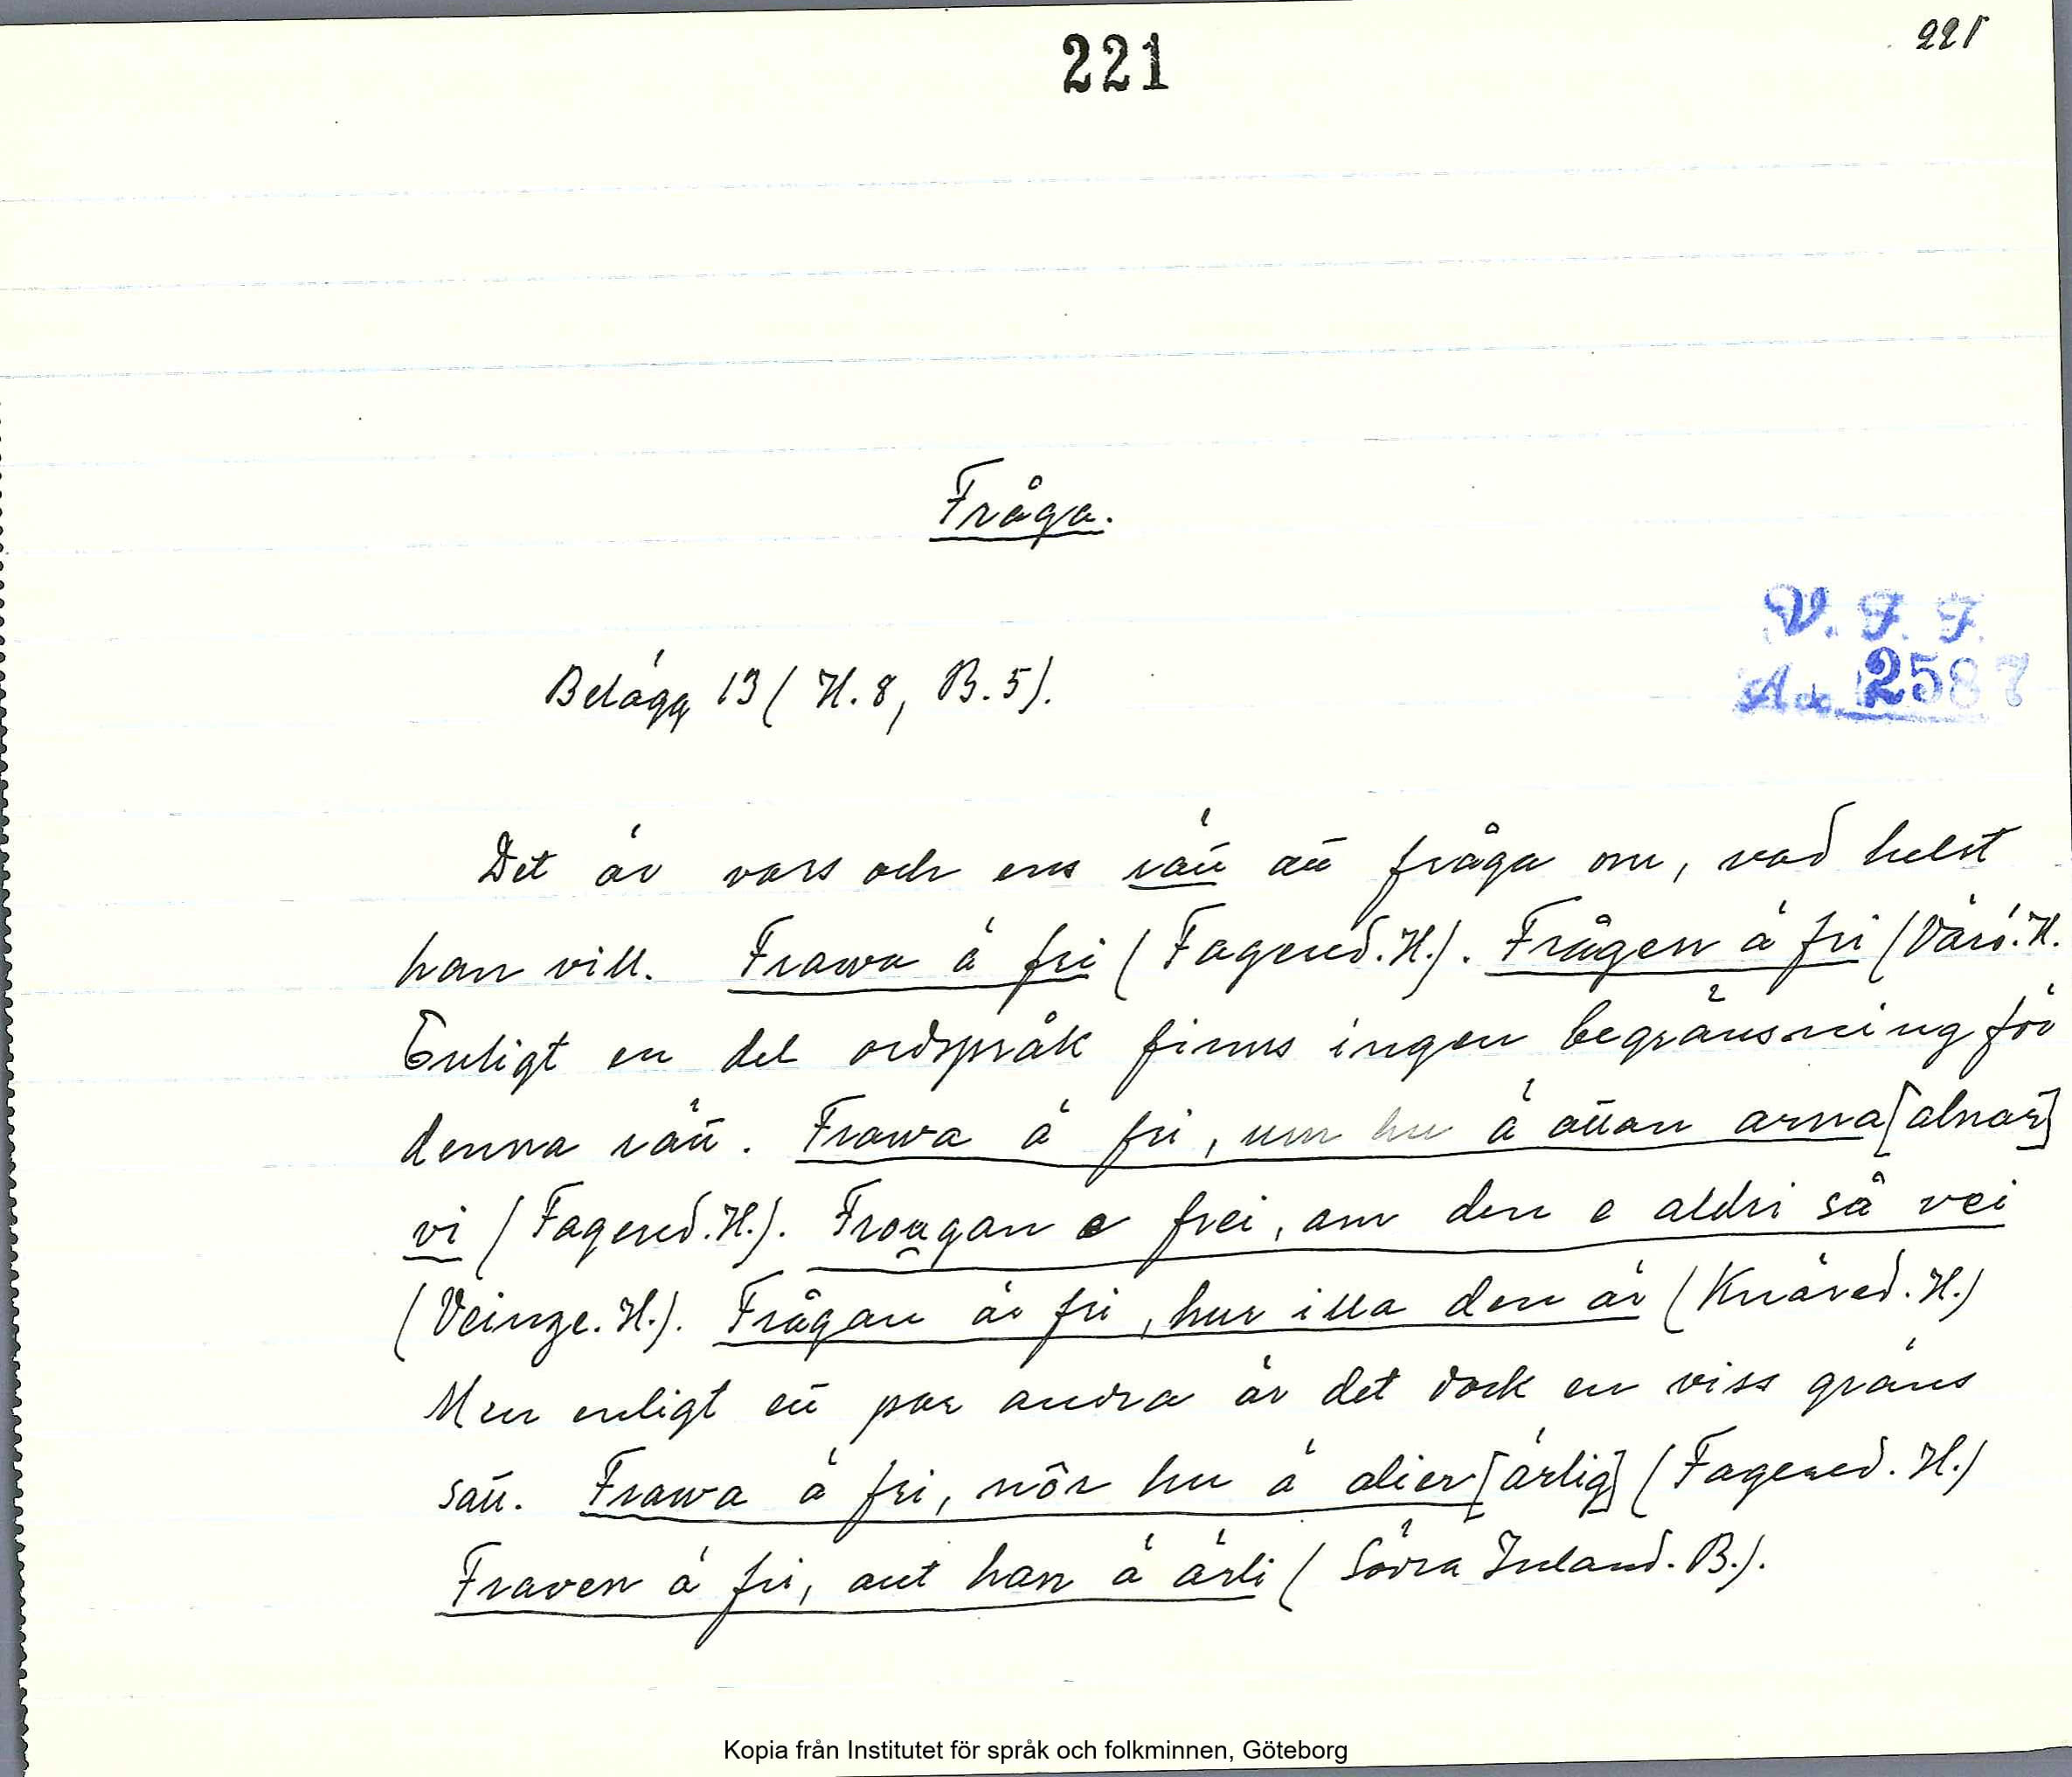 221
221
Fråga.
V. F. F.
Acc 2587
Belägg 13 (H. 8, B. 5).
Det är vars och ens rätt att fråga om, vad helst
han vill. Frawa ä fri (Fagered. H.). Frågen ä fri (Värö. H.
Enligt en del ordspråk finns ingen begränsning för
denna rätt. Frawa ä fri, um hu ä åttan arna [alnar]
vi (Fagered. H.). Frougan e frei, om den e aldri så vei
(Veinge. H.). Frågan är fri, hur illa den är (Knäred. H.)
Men enligt ett par andra är det dock en viss gräns
satt. Frawa ä fri, nôr hu ä alier [ärlig] (Fagered. H.)
Fraven ä fri, aut han ä ärli (Södra Inland. B.).
Kopia från Institutet för språk och folkminnen, Göteborg